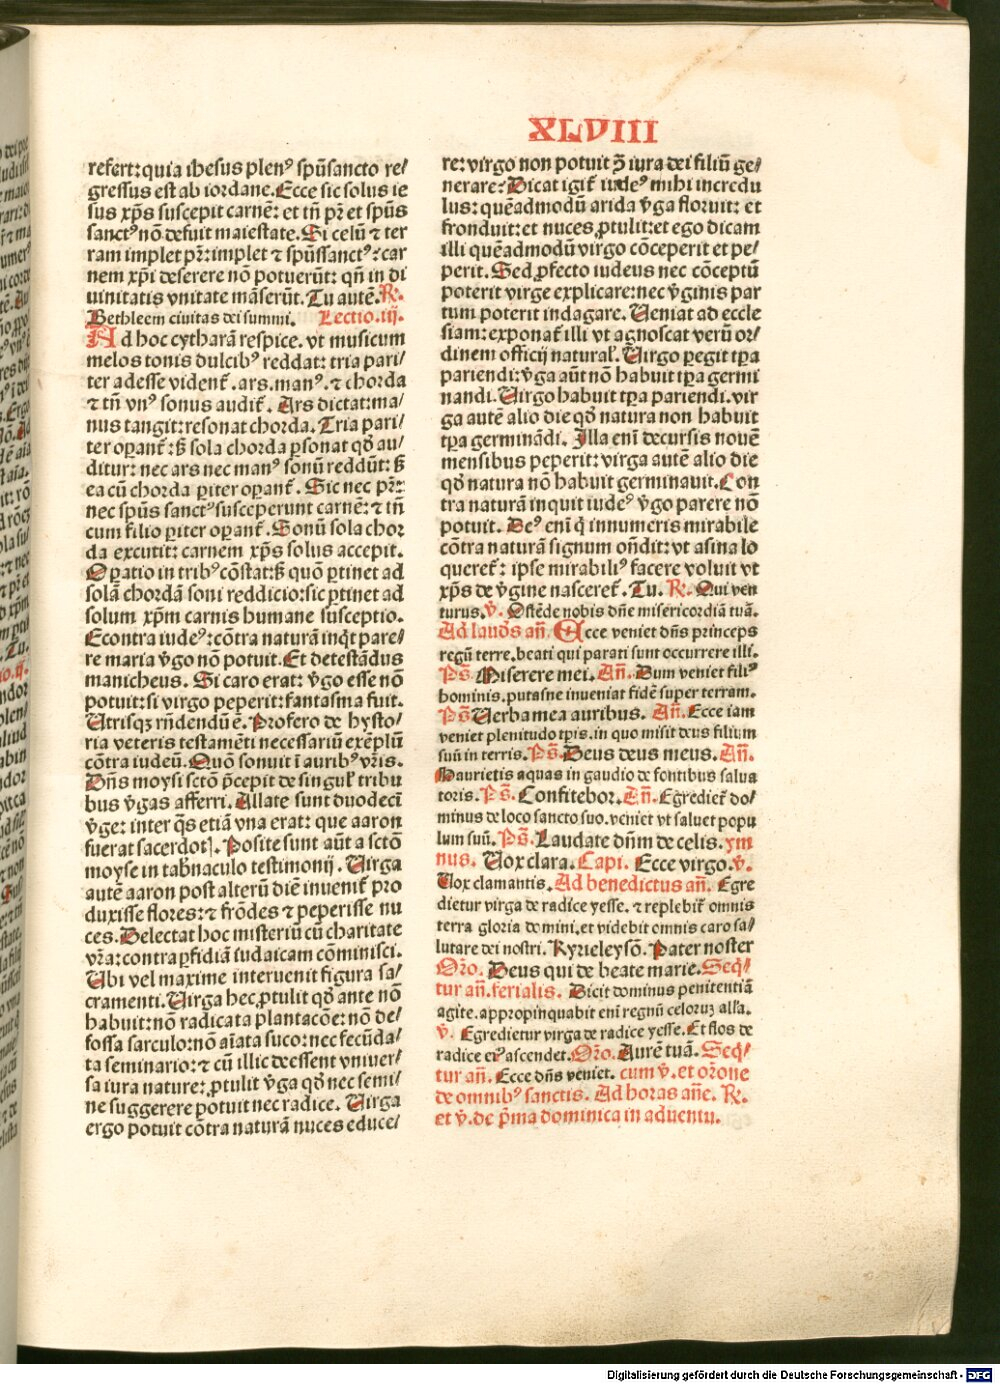 XLVIII
refert: quia ihesus plenꝰ spūsancto re/
gressus est ab iordane. Ecce sic solus ie
sus xp̄s suscepit carnē: et tn̄ pr̄ et spūs
sanctꝰ nō defuit maiestate. Si celū ⁊ ter
ram implet pr̄: implet ⁊ spūssanctꝰ: car
nem xp̄i deserere nō potuerūt: qn̄ in di
uinitatis vnitate māserūt. Tu autē. R.
Bethleem ciuitas dei summi. Lectio. iij.
Ad hoc cytharā respice. vt musicum
melos tonis dulcibꝰ reddat: tria pari/
ter adesse vident̄. ars. manꝰ. ⁊ chorda
⁊ tn̄ vnꝰ sonus audit̄. Ars dictat: ma/
nus tangit: resonat chorda. Tria pari/
ter operant̄: sꝫ sola chorda ꝑsonat qd̄ au/
ditur: nec ars nec manꝰ sonū reddūt: sꝫ
ea cū chorda ꝑiter operant̄. Sic nec pr̄:
nec spūs sanctꝰ susceperunt carnē: ⁊ tn̄
cum filio ꝑiter operant̄. Sonū sola chor
da excutit: carnem xp̄s solus accepit.
Opatio in tribꝰ cōstat: sꝫ quō ꝑtinet ad
solā chordā soni reddicio: sic ꝑtinet ad
solum xp̄m carnis humane susceptio.
Econtra iudeꝰ: cōtra naturā inqt pare/
re maria v̄go nō potuit. Et detestādus
manicheus. Si caro erat: v̄go esse nō
potuit: si virgo peperit: fantasma fuit.
Utrisqꝫ rn̄dendū ē. Profero de hysto/
ria veteris testamēti necessariū exēplū
cōtra iudeū. Quō sonuit ī auribꝰ vr̄is.
Dn̄s moysi sctō p̄cepit de singul' tribu
bus v̄gas afferri. Allate sunt duodecī
v̄ge: inter q̄s etiā vna erat: que aaron
fuerat sacerdotꝭ. Posite sunt aūt a sctō
moyse in tab̄naculo testimonij. Uirga
autē aaron post alterū diē inuenit̄ pro
duxisse flores: ⁊ frōdes ⁊ peperisse nu
ces. Delectat hoc misteriū cū charitate
vr̄a: contra ꝑfidiā iudaicam cōminisci.
Ubi vel maxime interuenit figura sa/
cramenti. Uirga hec ꝓtulit qd̄ ante nō
habuit: nō radicata plantacōe: nō de/
fossa sarculo: nō aīata suco: nec fecūda/
ta seminario: ⁊ cū illic deessent vniuer/
sa iura nature: ꝓtulit v̄ga qd̄ nec semi/
ne suggerere potuit nec radice. Uirga
ergo potuit cōtra naturā nuces educe/
re: virgo non potuit ꝯ iura dei filiū ge/
nerare? Dicat igit̄ iudeꝰ mihi incredu
lus: quēadmodū arida v̄ga floruit: et
fronduit: et nuces ꝓtulit: et ego dicam
illi quēadmodū virgo cōceperit et pe/
perit. Sed ꝓfecto iudeus nec cōceptū
poterit virge explicare: nec v̄ginis par
tum poterit indagare. Ueniat ad eccle
siam: exponat̄ illi vt agnoscat verū or/
dinem officij natural'. Uirgo ꝑegit tꝑa
pariendi: v̄ga aūt nō habuit tꝑa germi
nandi. Uirgo habuit tꝑa pariendi. vir
ga autē alio die qd̄ natura non habuit
tꝑa germināndi. Illa enī decursis nouē
mensibus peperit: virga autē alio die
qd̄ natura nō habuit germinauit. Con
tra naturā inquit iudeꝰ v̄go parere nō
potuit. Deꝰ enī q̄ innumeris mirabile
cōtra naturā signum on̄dit: vt asina lo
queret̄: ipse mirabiliꝰ facere voluit vt
xp̄s de v̄gine nasceret̄. Tu. R. Qui ven
turus. v. Ostēde nobis dn̄e misericordiā tuā.
Ad laudꝭ an̄. Ecce veniet dn̄s princeps
regū terre. beati qui parati sunt occurrere illi.
Ps̄. Miserere mei. An̄. Dum veniet filiꝰ
hominis. putasne inueniat fidē super terram.
Ps̄ Uerba mea auribus. An̄. Ecce iam
veniet plenitudo tp̄is. in quo misit deus filium
suū in terris. Ps̄. Deus deus meus. An̄.
Haurietis aquas in gaudio de fontibus salua
toris. Ps̄. Confitebor. An̄. Egrediet̄ do/
minus de loco sancto suo. veniet vt saluet popu
lum suū. Ps̄. Laudate dn̄m de celis. ym
nus. Uox clara. Capi. Ecce virgo. v.
Uox clamantis. Ad benedictus an̄. Egre
dietur virga de radice yesse. ⁊ replebit̄ omnis
terra gloria domini. et videbit omnis caro sa/
lutare dei nostri. Kyrieleysō. Pater noster
Or̄o. Deus qui de beate marie. Seq̄/
tur an̄. ferialis. Dicit dominus penitentiā
agite. appropinquabit enī regnū celorum all'a.
v. Egredietur virga de radice yesse. Et flos de
radice eiꝰ ascendet. Or̄o. Aurē tuā. Seq̄/
tur an̄. Ecce dn̄s veniet. cum v. et or̄one
de omnibꝰ sanctis. Ad horas an̄e. R.
et v. de p̄ma dominica in aduentu.
Digitalisierung gefördert durch die Deutsche Forschungsgemeinschaft - DFG